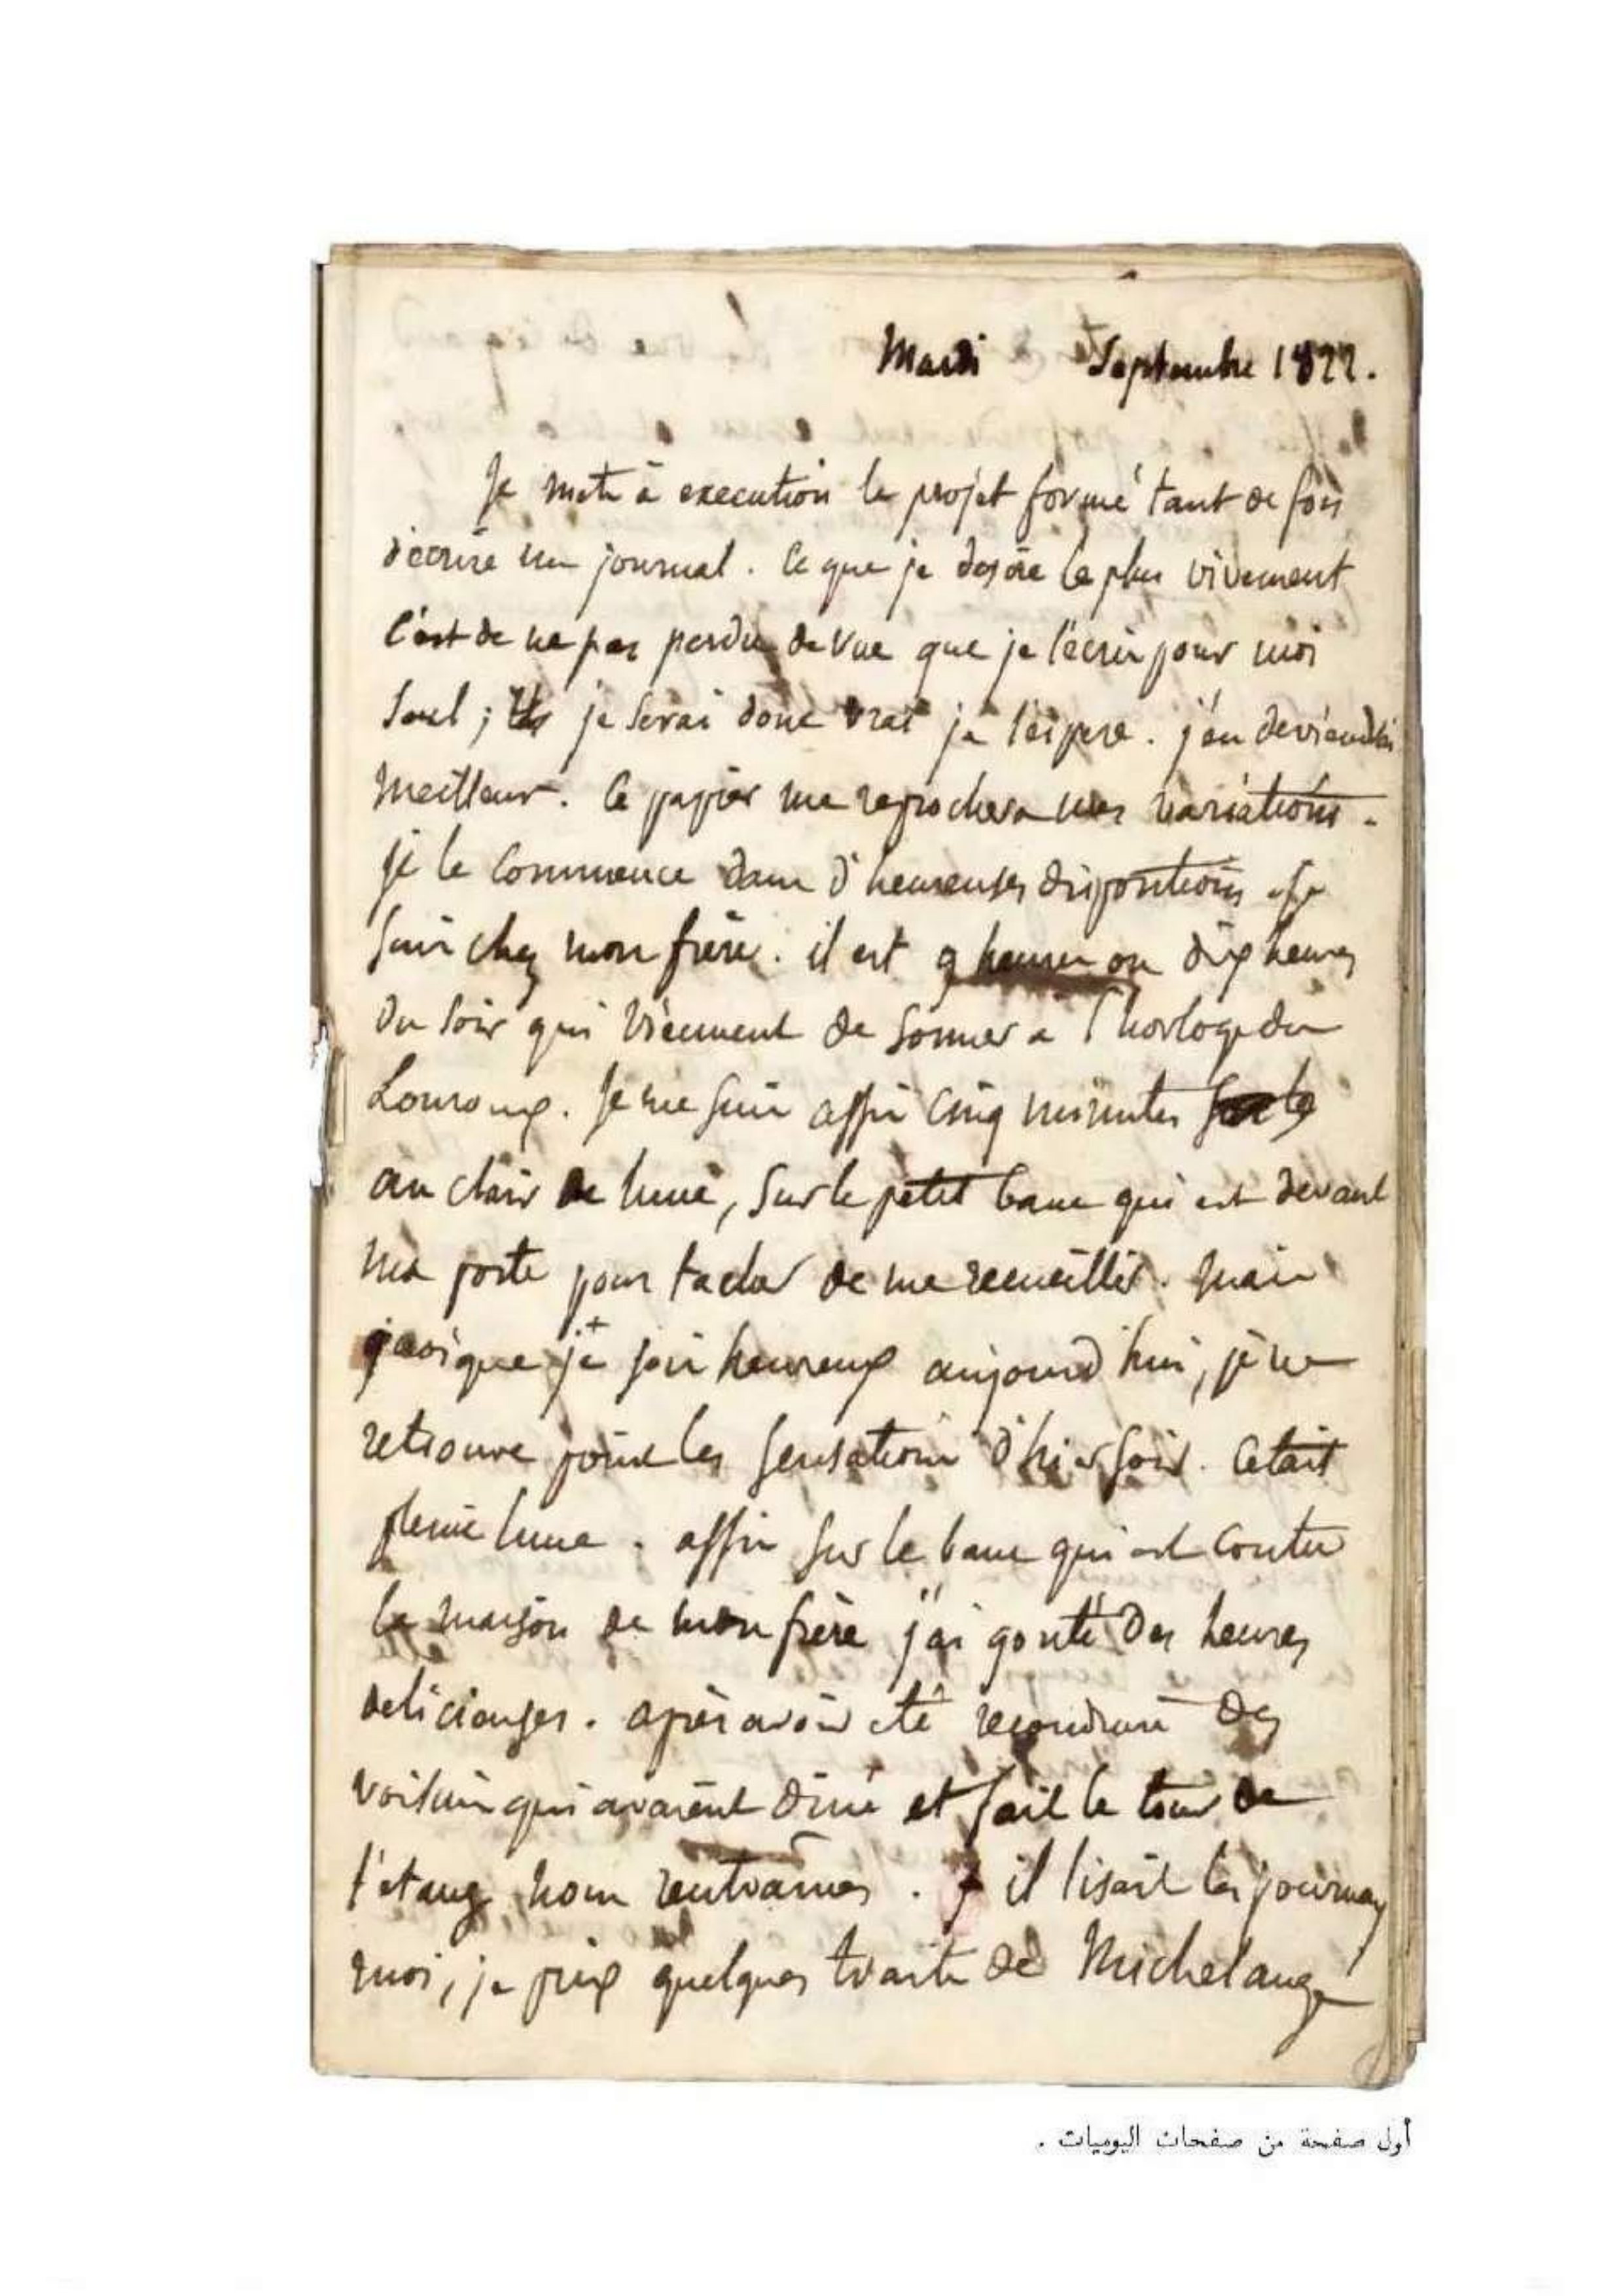 Mardi 3 Septembre 1822.
Je mets à execution le projet formé tant de fois
d'ecrire un journal. Ce que je desire le plus vivement
c'est de ne pas perdre de vue que je l'écris pour moi
seul ; je serai donc vrai je l'espere. j'en deviendrai
meilleur. Ce papier me reprochera mes variations.
je le commence dans d'heureuses dispositions. Je
suis chez mon frère. il est 9 heures ou dix heures
du soir qui viennent de sonner a l'horloge du
Louroux. Je me suis assis cinq minutes sur le
au clair de lune, sur le petit banc qui est devant
ma porte pour tacher de me recueillir. mais
quoique je sois heureux aujourd'hui, je ne
retrouve point les sensations d'hier soir. C'etait
pleine lune. assis sur le banc qui est contre
la maison de mon frère j'ai gouté des heures
delicieuses. après avoir été reconduire des
voisins qui avaient diné et fait le tour de
l'etang nous rentrames. il lisait les journaux
moi, je pris quelques traits de Michelange
أول صفحة من صفحات اليوميات .